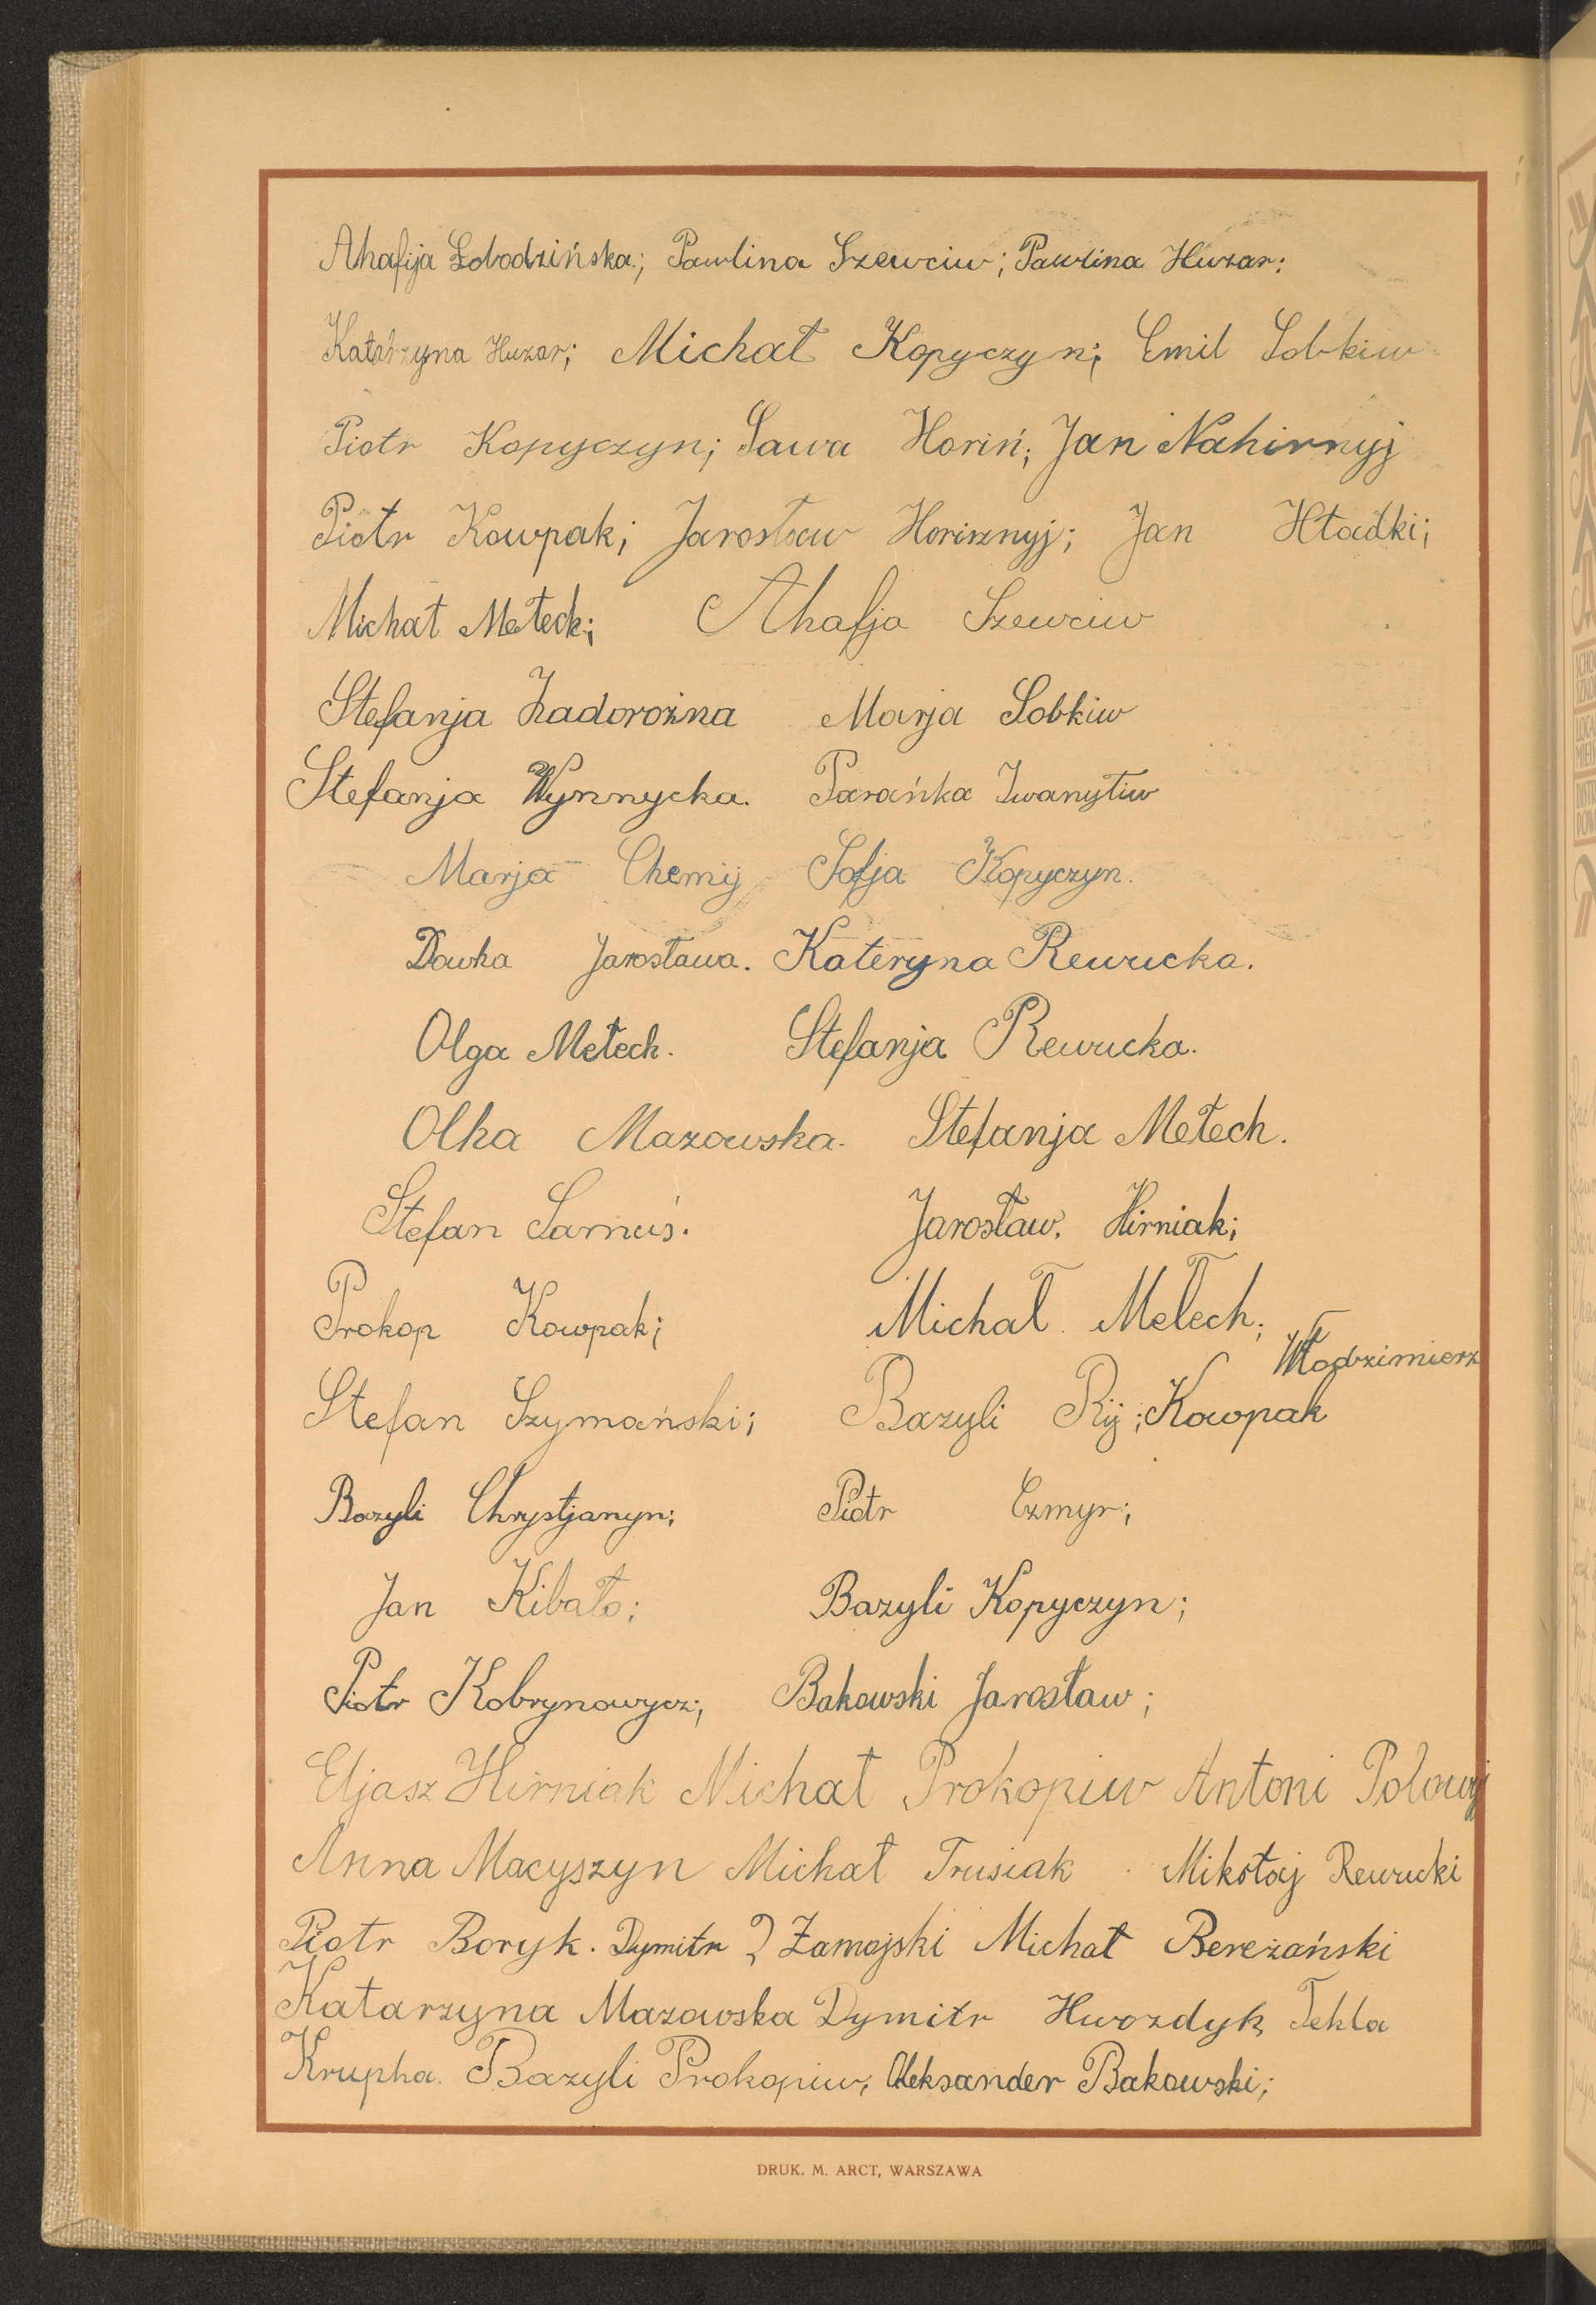 Ahafija Łobodzińska; Pawlina Szewciw; Pawlina Huzar:
Katarzyna Huzar; Michał Kopyczyn; Emil Sobkiw
Piotr Kopyczyn; Sawa Horiń; Jan Nahirnyj
Piotr Kowpak; Jarosław Horisznyj; Jan Hładki;
Michał Mełech; Ahafja Szewciw
Stefanja Zadorożna Marja Sobkiw
Stefanja Wynnycka. Parańka Iwanytiw
Marja Chemij Sofja Kopyczyn.
Dawha Jarosława. Kateryna Rewucka.
Olga Mełech. Stefanja Rewucka.
Olha Mazowska. Stefanja Mełech.
Stefan Sarnuś. Jarosław. Hirniak;
Prokop Kowpak; Michał Mełech;
Włodzimierz
Stefan Szymański; Bazyli Rij; Kowpak
Bazyli Chrystjanyn; Piotr Czmyr;
Jan Kibało; Bazyli Kopyczyn;
Piotr Kobrynowycz; Bakowski Jarosław;
Eljasz Hirniak Michał Prokopiw Antoni Polowyj
Anna Macyszyn Michał Trusiak Mikołaj Rewucki
Piotr Boryk. Dymitr Zamojski Michał Bereżański
Katarzyna Mazowska Dymitr Hwozdyk Tekla
Krupha. Bazyli Prokopiw; Aleksander Bakowski;
DRUK. M. ARCT, WARSZAWA